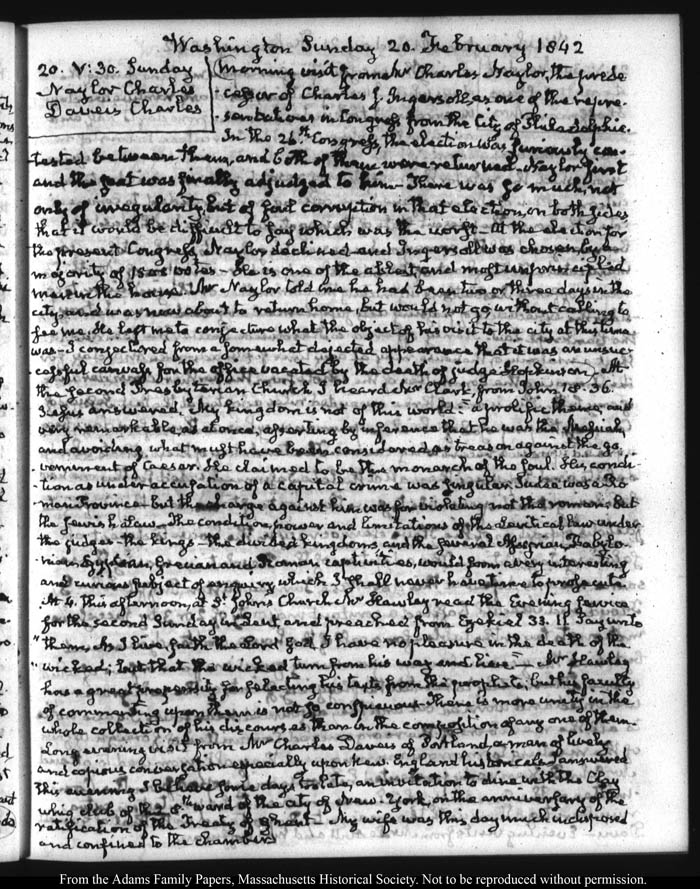 Washington Sunday 20. February 1842
20. V:30. Sunday
Naylor Charles
Daveis Charles
Morning visit from Mr Charles Naylor, the prede-
cessor of Charles J. Ingersoll, as one of the repre-
sentatives in Congress from the City of Philadelphia.
In the 26th Congress, the election was furiously con-
tested between them, and both of them were returned. Naylor first
and the seat was finally adjudged to him— There was so much, not
only of irregularity, but of foul corruption in that election, on both sides
that it would be difficult to say which was the worst— At the election for
the present Congress, Naylor declined and Ingersoll was chosen, by a
majority of votes— He is one of the ablest, and most unprincipled
men in the house. Mr Naylor told me he had been two or three days in the
city, and was now about to return home, but would not go without calling to
see me. He left me to conjecture what the object of his visit to the city at this time
was— I conjectured from a somewhat dejected appearance that it was an unsuc-
cessful canvass for the office vacated by the death of judge Hopkinson. At
the second Presbyterian Church I heard Mr Clark, from John 18. 36.
Jesus answered, My kingdom is not of this world: a prolific theme, and
very remarkable, as at once, asserting by inference that he was the Messiah,
and avoiding what must have been considered as treason against the go-
vernment of Caesar. He claimed to be the monarch of the soul. His condi-
tion as under accusation of a capital crime was singular. Judea was a Ro-
man Province but the charge against him was for violating not the roman, but
the Jewish law— The condition, power and limitations of the Levitical law under
the judges— the kings— the divided kingdoms, and the several Assyrian, Babylo-
nian, Egyptian, Grecian and Roman captivities, would form a very interesting
and curious subject of enquiry, which I shall never have time to prosecute.
At 4. this afternoon, at St. John's Church Mr Hawley read the Evening service
for the second Sunday in Lent, and preached from Ezekiel 33. 11 Say unto
"them, As I live, saith the Lord God, I have no pleasure in the death of the
"wicked; but that the wicked turn from his way and live— Mr Hawley
has a great propensity for selecting his texts from the prophets; but his faculty
of commenting upon them is not so conspicuous. There is more unity in the
whole collection of his discourses than in the composition of any one of them.
Long evening visit from Mr Charles Daveis of Portland, a man of lively
and copious conversation especially upon New England his I answered
this evening I believe some days too late, an invitation to dine with the Clay
whig club of the ward of the city of New-York, on the anniversary of the
ratification of the Treaty of Ghent— My wife was this day much indisposed
and confined to her chamber
From the Adams Family Papers, Massachusetts Historical Society. Not to be reproduced without permission.